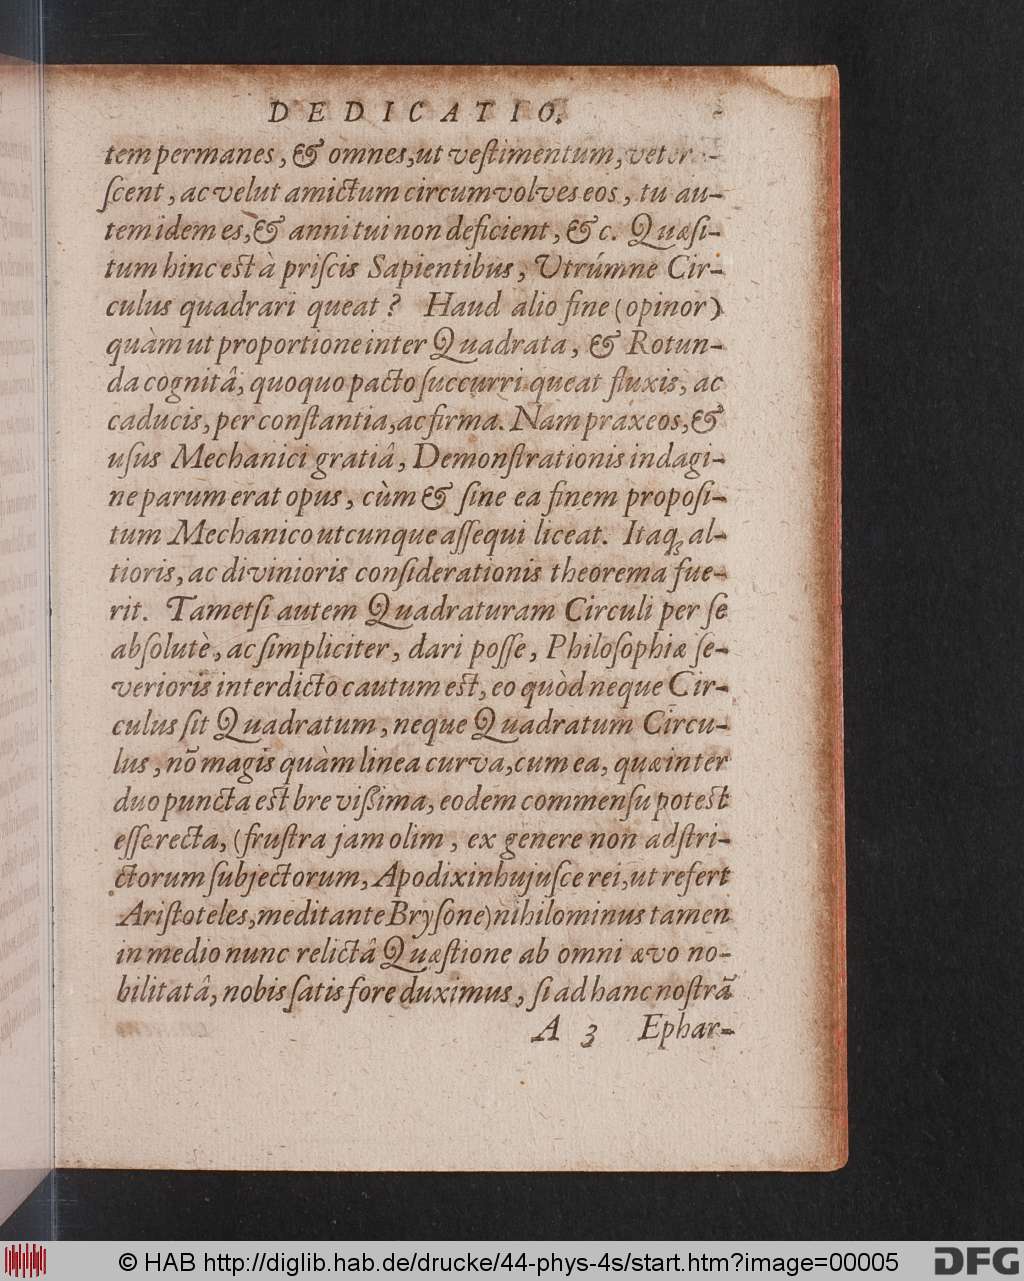 DEDICATIO.
tem permanes, & omnes, ut veſtimentum, veter
ſcent, ac velut amictum circumvolves eos, tu au-
tem idem es, & anni tui non deficient, &c. Quæſi-
tum hinc est à priſcis Sapientibus, Utrúmne Cir-
culus quadrari queat? Haud alio fine (opinor)
quàm ut proportione inter Quadrata, & Rotun-
da cognitâ, quoquo pacto ſuccurri queat fluxis, ac
caducis, per conſtantia, ac firma. Nam práxeos, &
uſus Mechanici gratiâ, Demonſtrationis indagi-
ne parum erat opus, cùm & ſine ea finem propoſi-
tum Mechanico utcunque aſſequi liceat. Itaq; al-
tioris, ac divinioris conſiderationis theorema fue-
rit. Tametſi autem Quadraturam Circuli per ſe
abſolutè, ac ſimpliciter, dari poſſe, Philoſophiæ ſe-
verioris interdicto cautum est, eo quòd neque Cir-
culus ſit Quadratum, neque Quadratum Circu-
lus, nõ magis quàm linea curva, cum ea, quæ inter
duo puncta est breviſſima, eodem commenſu potest
eſſe recta, (fruſtra jam olim, ex genere non adſtri-
ctorum ſubjectorum, Apodixin hujuſce rei, ut refert
Ariſtoteles, meditante Bryſone) nihilominus tamen
in medio nunc relictâ Quæſtione ab omni ævo no-
bilitatâ, nobis ſatis fore duximus, ſi ad hanc noſtrã
A 3 Ephar-
© HAB http://diglib.hab.de/drucke/44-phys-4s/start.htm?image=00005 DFG